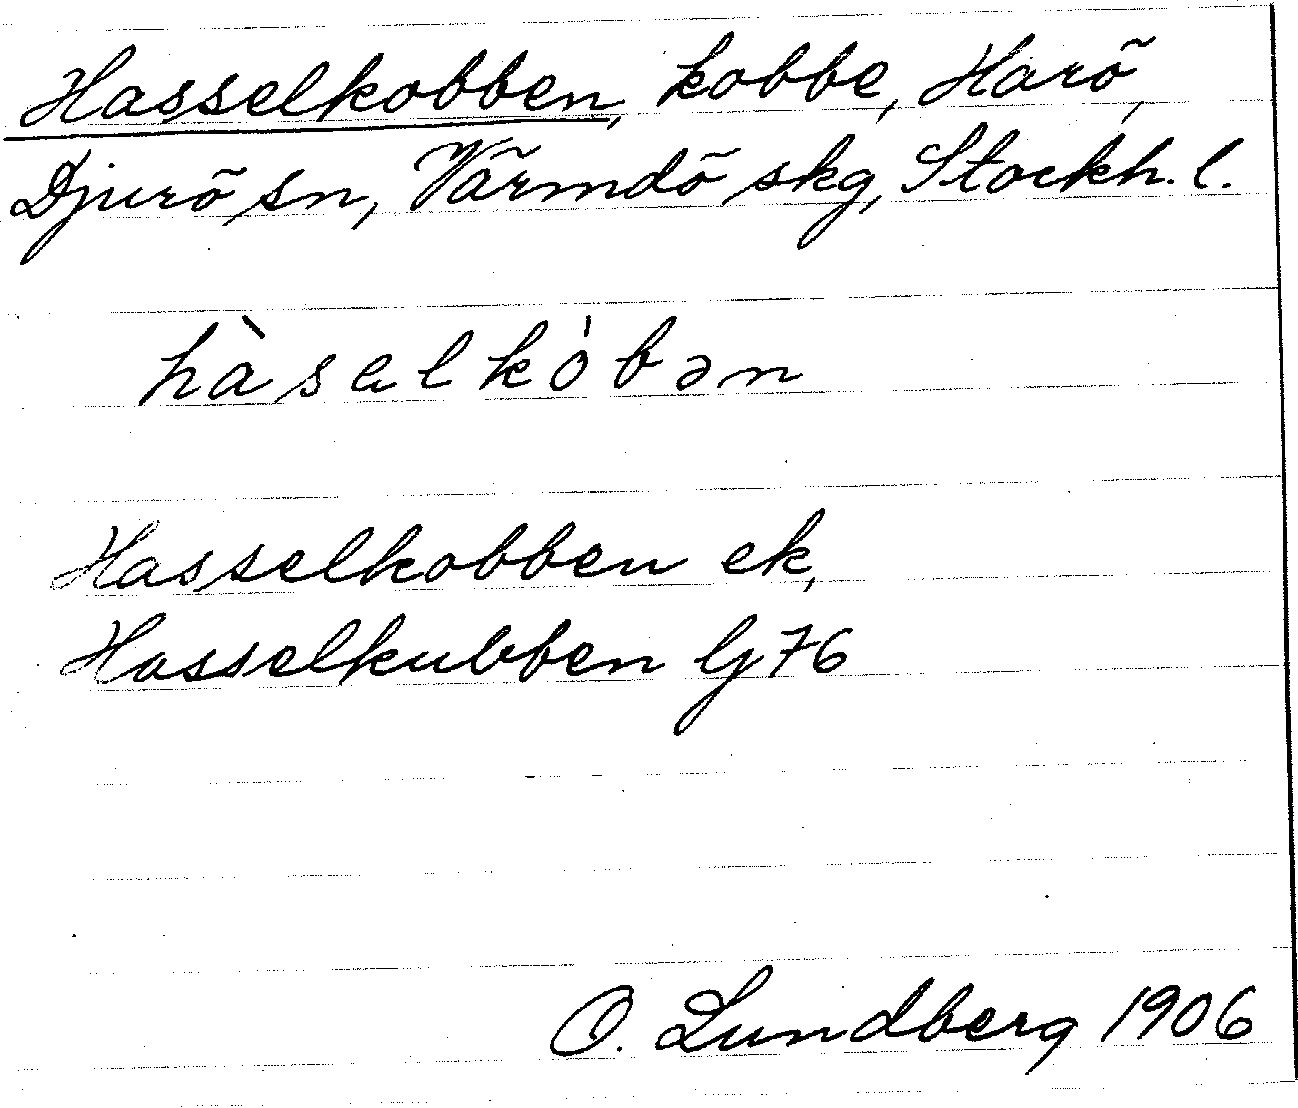 Hasselkobben, kobbe, Harö,
Djurö sn, Värmdö skg, Stockh. l.
hàselkòbən
Hasselkobben ek,
Hasselkubben Gj 76
O. Lundberg 1906